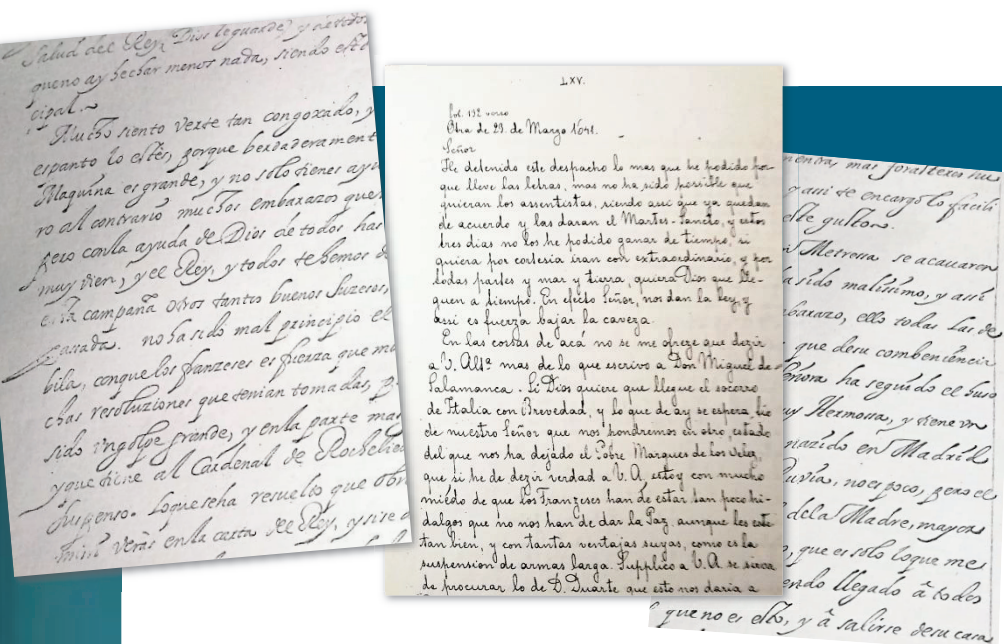 Salud del Rey, Dios le guarde, y de todos
queno ay hechar menos nada, siendo esto
cipal.
Mucho siento verte tan congoxado, y
espanto lo estés, porque berdaderament
Maquina es grande, y no solo tienes ayu
ro al contrario muchos embarazos que
pero conla ayuda de Dios de todos has
muy vien, y el Rey, y todos te hemos d
esta campaña otros tantos buenos suzesos,
passada. no ha sido mal prinzipio el
bila, conque los franzeses es fuerza que m
chas resoluziones que tenian tomadas, p
sido ungolpe grande, y enla parte ma
yque tiene al Cardenal de Rochelieu
suspenso. Loque seha resuelto que
verás enla carta del Rey, y si se
LXV.
fol. 132 verso
Otra de 29. de Marzo 1641.
Señor
He detenido este despacho lo mas que he podido por-
que lleve las letras, mas no ha sido possible que
quieran los assentistas, siendo assi que ya quedan
de acuerdo y las daran el Martes-Sancto, y estos
tres dias no los he podido ganar de tiempo, ni
quiera por cortesia iran con extraordinario, y por
todas partes y mar y tierra, quiera Dios que lle-
guen a tiempo. En efecto Señor, nos dan la ley, y
assi es fuerza bajar la caveza.
En las cossas de acá no se me ofreze que dezir
a V. Altª mas de lo que escrivo a Don Miguel de
Salamanca. Si Dios quiere que llegue el socorro
de Italia con Brevedad, y lo que de ay se espera, fio
de nuestro Señor que nos pondremos en otro estado
del que nos ha dejado el Pobre Marques de los Velez,
que si he de dezir verdad a V. A. estoy con mucho
miedo de que los Franzeses han de estar tan poco hi-
dalgos que no nos han de dar la Paz, aunque les esté
tan bien, y con tantas ventajas suyas, como es la
suspension de armas larga. Supplico a V. A. se sirva
de procurar lo de D. Duarte que esto nos daria a
mas forasteros
y assi te encargo lo facili
este gusto.
Metressa se acavaron
sido malissimo, y assi
barazo, ello todas las de
que desu combeniencia
eñora ha seguido el
uy Hermossa, y tiene un
nazido en Madrid
, no es poco, pero el
dela Madre, mayors
, que es solo loque mes
endo llegado â todos
queno es esto, y â salirse desu cassa